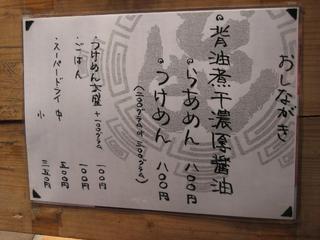 おしながき
背油煮干濃厚醤油
らあめん 八〇〇円
つけめん 八〇〇円
(二〇〇グラム or 三〇〇グラム)
つけめん大盛 +一〇〇グラム 一〇〇円
ごはん 一〇〇円
スーパードライ 中 五〇〇円
小 三五〇円